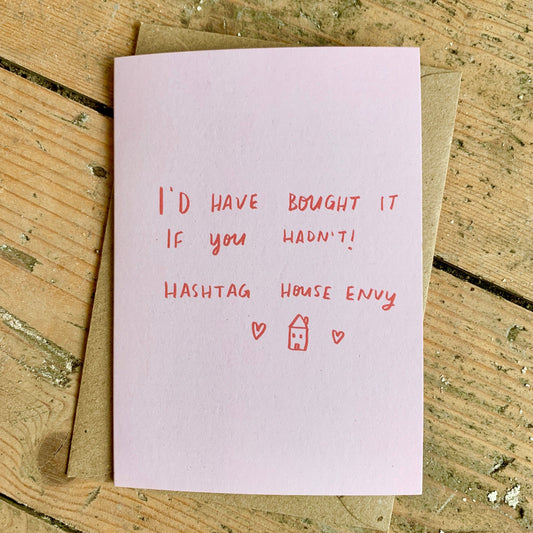 I'D HAVE BOUGHT IT
IF YOU HADN'T!
HASHTAG HOUSE ENVY